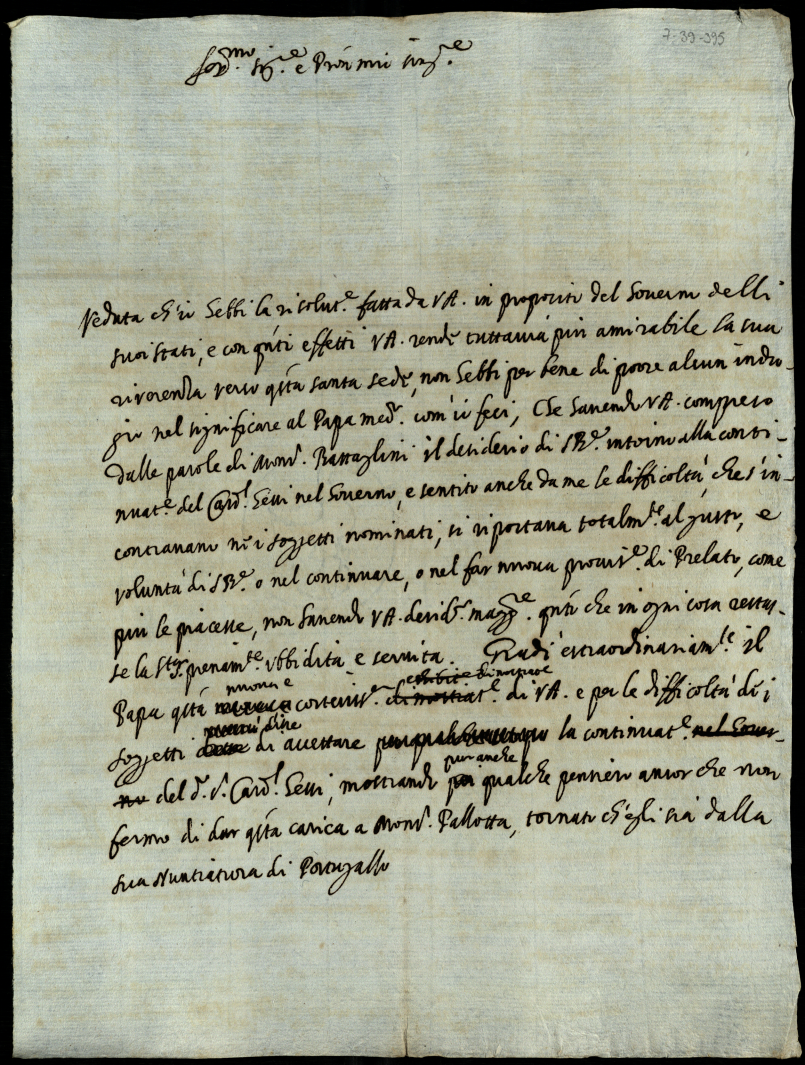 7-39-395
Ser.mo Sig.re e Pron mio sing.re
Veduta ch'io hebbi la risolut.e fatta da VA. in proposito del Governo delli
suoi stati, e con q'nti effetti VA. rende tuttavia più amirabile la sua
riverenza verso q'sta santa sede, non hebbi per bene di porre alcun indu-
gio nel significare al Papa med.o com'io feci, che havendo VA. compreso
dalle parole di Mons.r Battaglini il desiderio di S B.e intorno alla conti-
nuat.e del Card.l Sessi nel Governo, e sentito anche da me le difficoltà, che s'in-
contravano ne i soggetti nominati, si riportava totalm.te al gusto, e
voluntà di S B.e o nel continuare, o nel far nuova provis.e di Prelato, come
più le piacesse, non havendo VA. desid.o magg.re q'nto che in ogni cosa restas-
se la S.tà S. pienam.te ubbidita e servita. Gradì estraordinariam.te il
Papa q'sta nuova e cortesiss.a di VA. e per le difficoltà di i
soggetti di accettare la continuat.e nel Gover-
no del d.o S. Card.l Sessi, mostrando pur anche qualche pensiero ancor che non
fermo di dar q'sta carica a Mons.r Pallotta, tornato ch'egli sia dalla
sua Nuntiatura di Portugallo